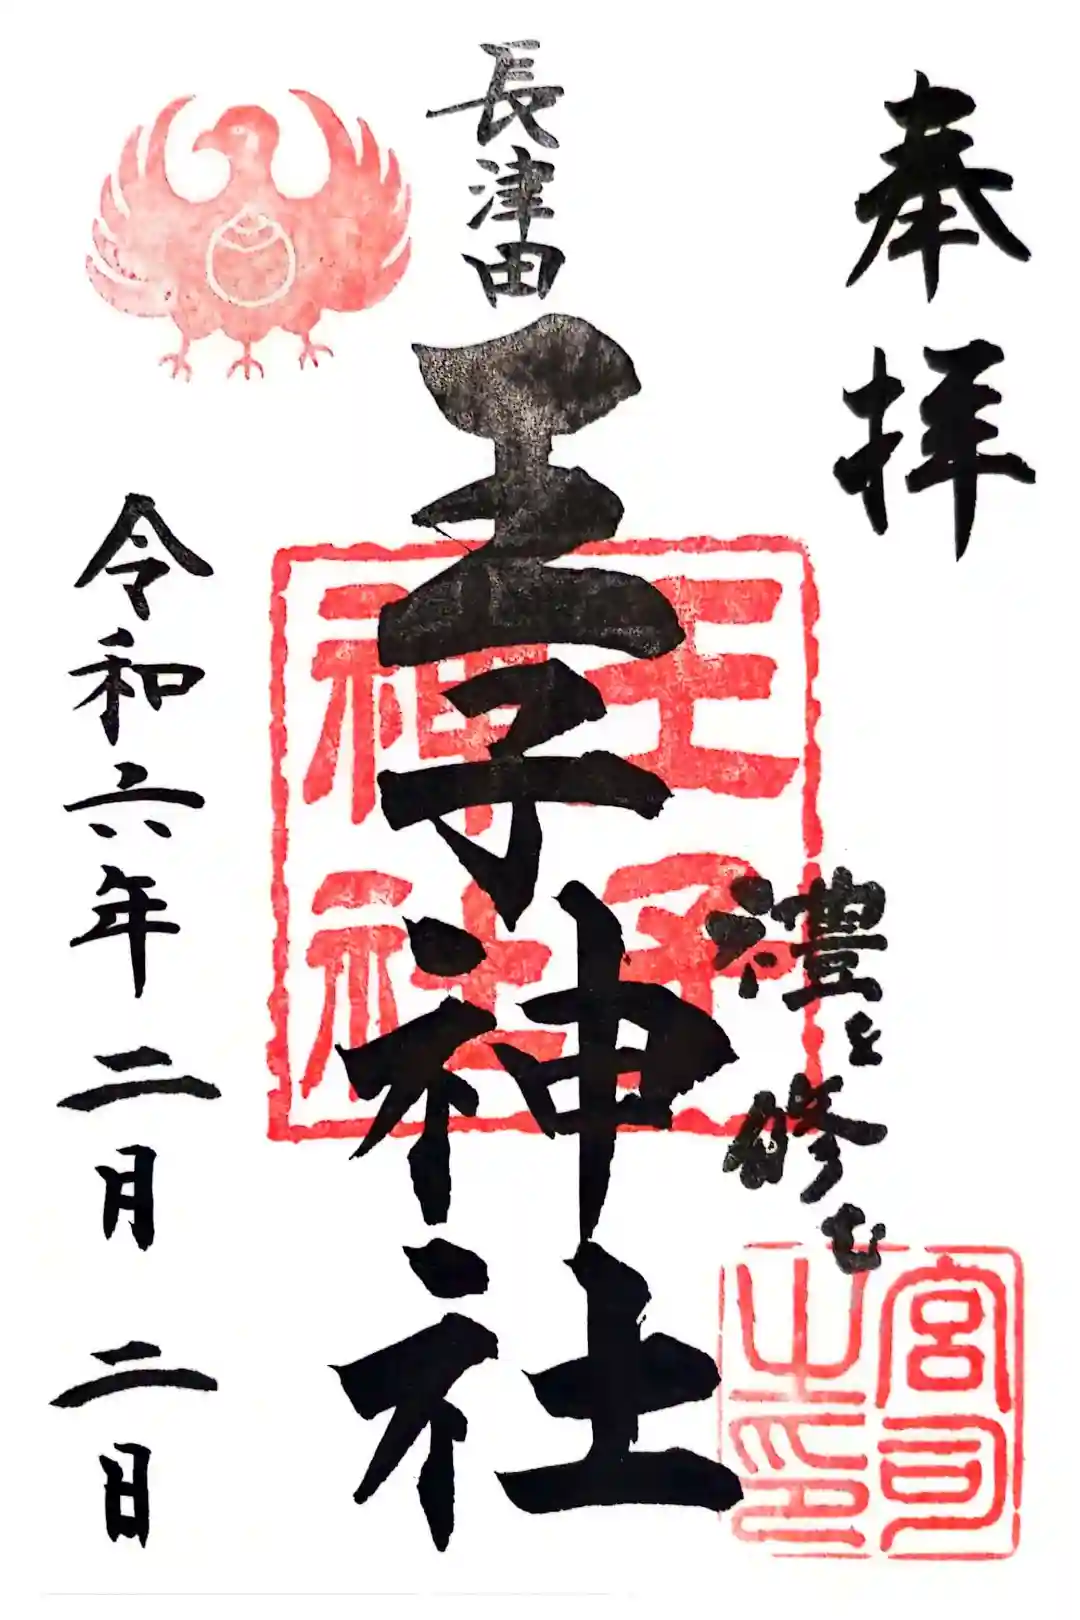 奉拝
禮を修む
宮司之印
長津田
王子神社
王子神社
令和六年二月二日